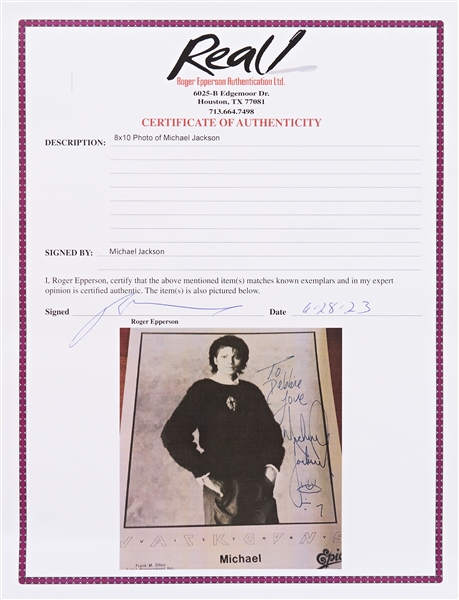 Real!
Roger Epperson Authentication Ltd.
6025-B Edgemoor Dr.
Houston, TX 77081
713.664.7498
CERTIFICATE OF AUTHENTICITY
DESCRIPTION: 8x10 Photo of Michael Jackson
SIGNED BY: Michael Jackson
I, Roger Epperson, certify that the above mentioned item(s) matches known exemplars and in my expert
opinion is certified authentic. The item(s) is also pictured below.
Signed Date 6-28-23
Roger Epperson
To
Debbie
Love
Michael
Jackson
JACKSONS
Michael
Epic
Frank M. Dileo